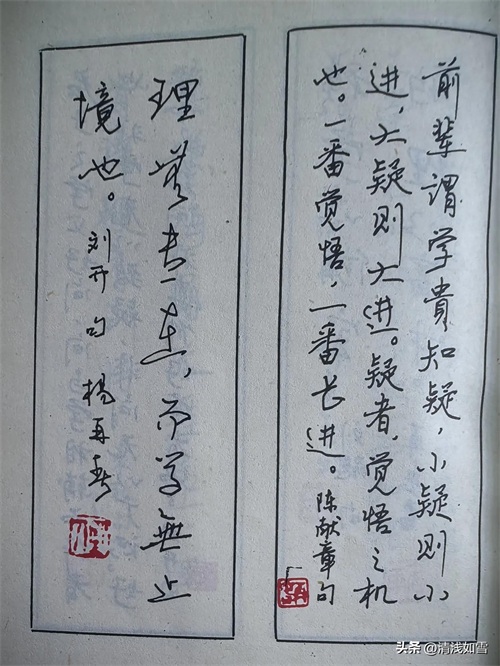 前辈谓学貴知疑，小疑则小
进，大疑则大进。疑者，觉悟之机
也。一番觉悟，一番长进。陈献章句
理無专在，而学無止
境也。刘开句 杨再春
头条@清浅如雪